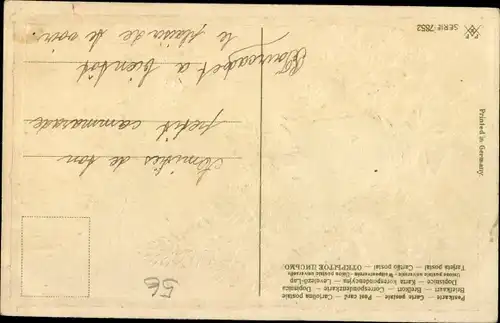 Postkarte — Carte postale — Post card — Cartolina postale
Briefkaart — Brefkort — Correspondenzkarte — Dopisnica
Dopisnice — Karta korespondencyjna — Levelező-Lap
Union postale universelle - Weltpostverein - Unión postal universal
Tarjeta postal — Cartão postal — ОТКРЫТОЕ ПИСЬМО
Amitiés de ton
petit cammarade
à bientôt
le plaisir de te voir.
Printed in Germany.
SERIE 7852
56